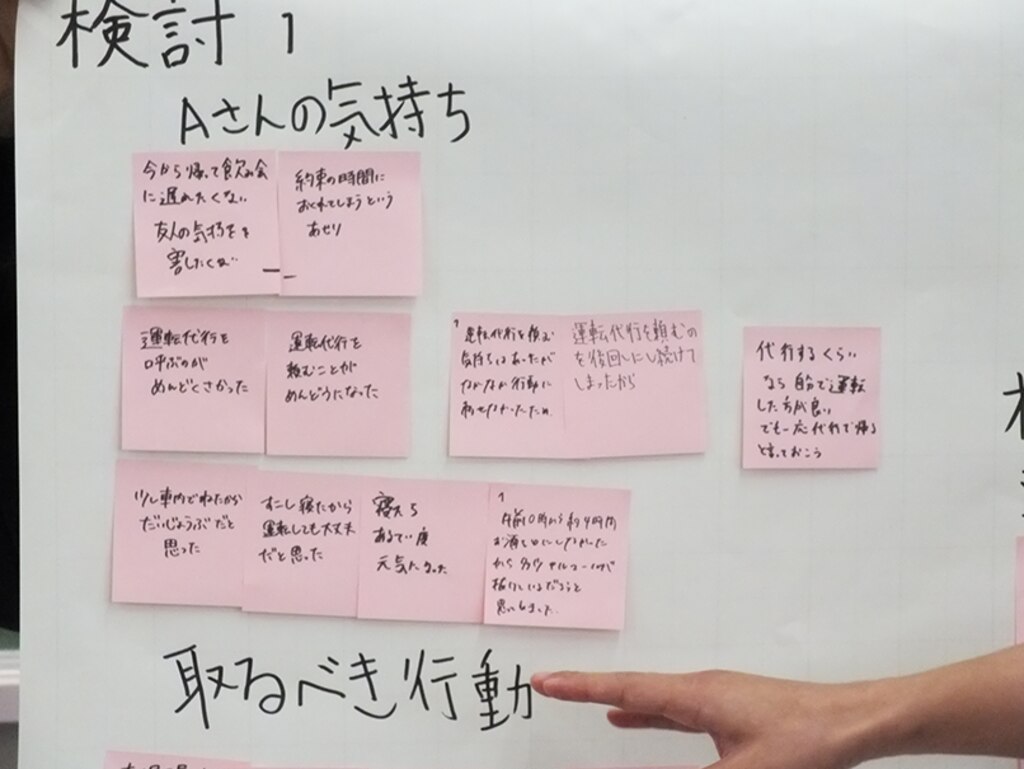 検討 1
Aさんの気持ち
今から帰って飲み会
に遅れたくない
友人の気持ちを
害したくない
約束の時間に
おくれてしまうという
あせり
運転代行を
呼ぶのが
めんどくさかった
運転代行を
頼むことが
めんどうになった
運転代行を頼む
気持ちはあったが
なかなか行動に
運転代行を頼むの
を後回しにし続けて
しまったから
代行するくらい
なら自分で運転
した方が良い
でも一応代行で帰る
と言っておこう
少し車内でねたから
だいじょうぶだと
思った
すこし寝たから
運転しても大丈夫
だと思った
寝たら
ある程度
元気になった
午前0時から約4時間
お酒を口にしなかった
から多少アルコールが
抜けているだろうと
思いました
取るべき行動